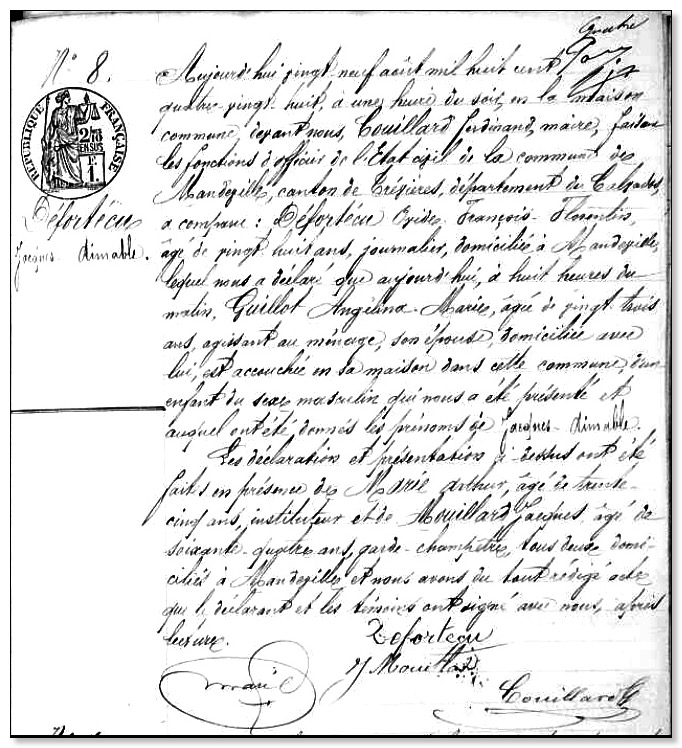 Quatre
N° 8.
RÉPUBLIQUE FRANÇAISE
2/10 EN SUS
1 F.
Défortécu
Jacques-Aimable.
Aujourd'hui vingt-neuf août mil huit cent
quatre-vingt-huit, à une heure du soir, en la maison
commune, devant nous, Couillard Ferdinand, maire, faisant
les fonctions d'officier de l'Etat civil de la commune de
Mandeville, canton de Trévières, département du Calvados,
a comparu : Défortécu Ovide-François-Florentin,
âgé de vingt-huit ans, journalier, domicilié à Mandeville,
lequel nous a déclaré que aujourd'hui, à huit heures du
matin, Guillot Angélina-Marie, âgée de vingt-trois
ans, agissant au ménage, son épouse, domiciliée avec
lui, est accouchée en sa maison dans cette commune, d'un
enfant du sexe masculin qui nous a été présenté et
auquel ont été donnés les prénoms de Jacques-Aimable.
Les déclaration et présentation ci-dessus ont été
faits en présence de Marie Arthur, âgé de trente-
cinq ans, instituteur et de Mouillard Jacques, âgé de
soixante-quatre ans, garde-champêtre, tous deux domi-
ciliés à Mandeville et nous avons du tout rédigé acte
que le déclarant et les témoins ont signé avec nous, après
lecture.
Defortécu
Marie
J Mouillard
Couillard F